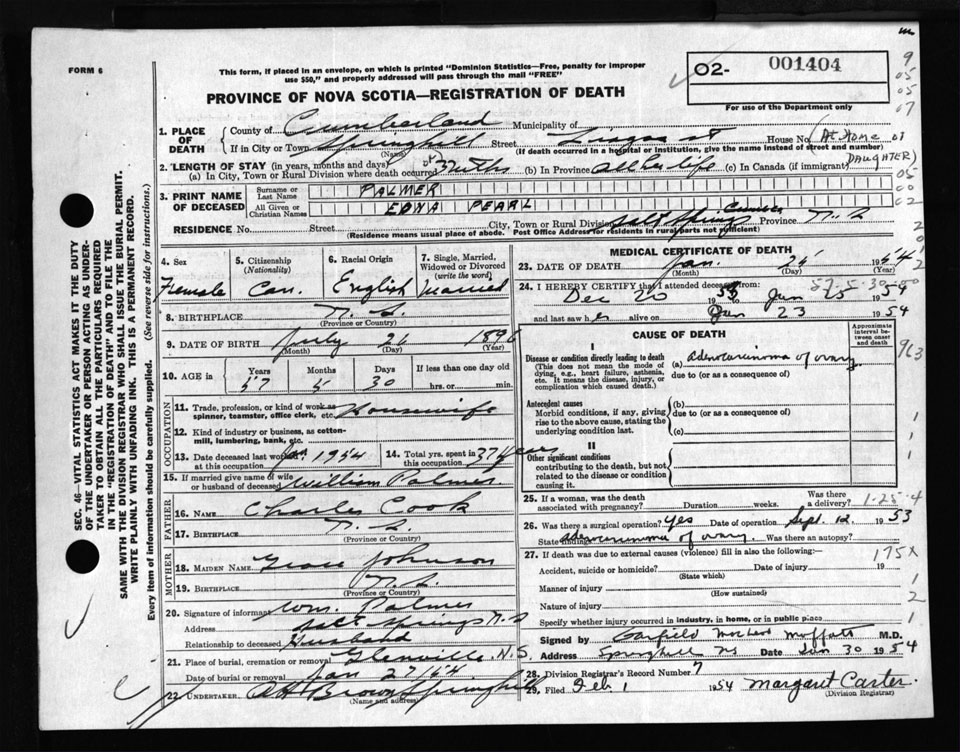 FORM 6
This form, if placed in an envelope, on which is printed "Dominion Statistics—Free, penalty for improper
use $50," and properly addressed will pass through the mail "FREE"
O2- 001404
For use of the Department only
PROVINCE OF NOVA SCOTIA—REGISTRATION OF DEATH
1. PLACE OF DEATH
County of Cumberland Municipality of
If in City or Town Springhill Street House No. (At Home of
(Name) (If death occurred in a hospital or institution, give the name instead of street and number)
DAUGHTER)
2. LENGTH OF STAY (in years, months and days)
(a) In City, Town or Rural Division where death occurred 3 mths (b) In Province all her life (c) In Canada (if immigrant)
3. PRINT NAME OF DECEASED
Surname or Last Name PALMER
All Given or Christian Names EDNA PEARL
RESIDENCE No. Street City, Town or Rural Division Salt Springs Cumb Province N.S.
(Residence means usual place of abode. Post Office Address for residents in rural parts not sufficient)
4. Sex Female
5. Citizenship (Nationality) Can.
6. Racial Origin English
7. Single, Married, Widowed or Divorced (write the word) Married
8. BIRTHPLACE N.S.
(Province or Country)
9. DATE OF BIRTH July 26 1896
(Month) (Day) (Year)
10. AGE in Years Months Days If less than one day
57 5 30 hrs. or min.
OCCUPATION
11. Trade, profession, or kind of work as spinner, teamster, office clerk, etc. Housewife
12. Kind of industry or business, as cotton-mill, lumbering, bank, etc.
13. Date deceased last worked at this occupation Jan. 1954
14. Total yrs. spent in this occupation 37 years
15. If married give name of wife or husband of deceased William Palmer
FATHER
16. NAME Charles Cook
17. BIRTHPLACE N.S.
(Province or Country)
MOTHER
18. MAIDEN NAME Grace Johnson
19. BIRTHPLACE N.S.
(Province or Country)
20. Signature of informant Wm. Palmer
Address Salt Springs N.S
Relationship to deceased Husband
21. Place of burial, cremation or removal Glenville, N.S.
Date of burial or removal Jan 27/54
22. UNDERTAKER Brown Springhill
(Name and address)
MEDICAL CERTIFICATE OF DEATH
23. DATE OF DEATH Jan. 25 1954
(Month) (Day) (Year)
24. I HEREBY CERTIFY that I attended deceased from:
Dec 20 1953 to Jan 25 1954
and last saw her alive on Jan 23 1954
CAUSE OF DEATH
Approximate interval between onset and death
I
Disease or condition directly leading to death
(This does not mean the mode of dying, e.g., heart failure, asthenia, etc. It means the disease, injury, or complication which caused death.)
(a) adenocarcinoma of ovary
due to (or as a consequence of)
Antecedent causes
Morbid conditions, if any, giving rise to the above cause, stating the underlying condition last.
(b)
due to (or as a consequence of)
(c)
II
Other significant conditions
contributing to the death, but not related to the disease or condition causing it.
25. If a woman, was the death associated with pregnancy? Duration weeks. Was there a delivery?
1-25-4
26. Was there a surgical operation? yes Date of operation Sept. 12, 1953
State findings adenocarcinoma of ovary. Was there an autopsy?
27. If death was due to external causes (violence) fill in also the following:
175X
Accident, suicide or homicide? Date of injury 19
(State which)
Manner of injury
(How sustained)
Nature of injury
Specify whether injury occurred in industry, in home, or in public place
Signed by Garfield Moffatt M.D.
Address Springhill NS Date Jan 30 1954
28. Division Registrar's Record Number 7
29. Filed Feb 1 1954 Margaret Carter.
(Division Registrar)
SEC. 46—VITAL STATISTICS ACT MAKES IT THE DUTY
OF THE UNDERTAKER OR PERSON ACTING AS UNDER-
TAKER TO OBTAIN ALL THE PARTICULARS REQUIRED
IN THE "REGISTRATION OF DEATH" AND TO FILE THE
SAME WITH THE DIVISION REGISTRAR WHO SHALL ISSUE THE BURIAL PERMIT.
WRITE PLAINLY WITH UNFADING INK. THIS IS A PERMANENT RECORD.
Every item of information should be carefully supplied. (See reverse side for instructions.)
9
05
05
07
05
00
02
963
1
1
1
1
2
1